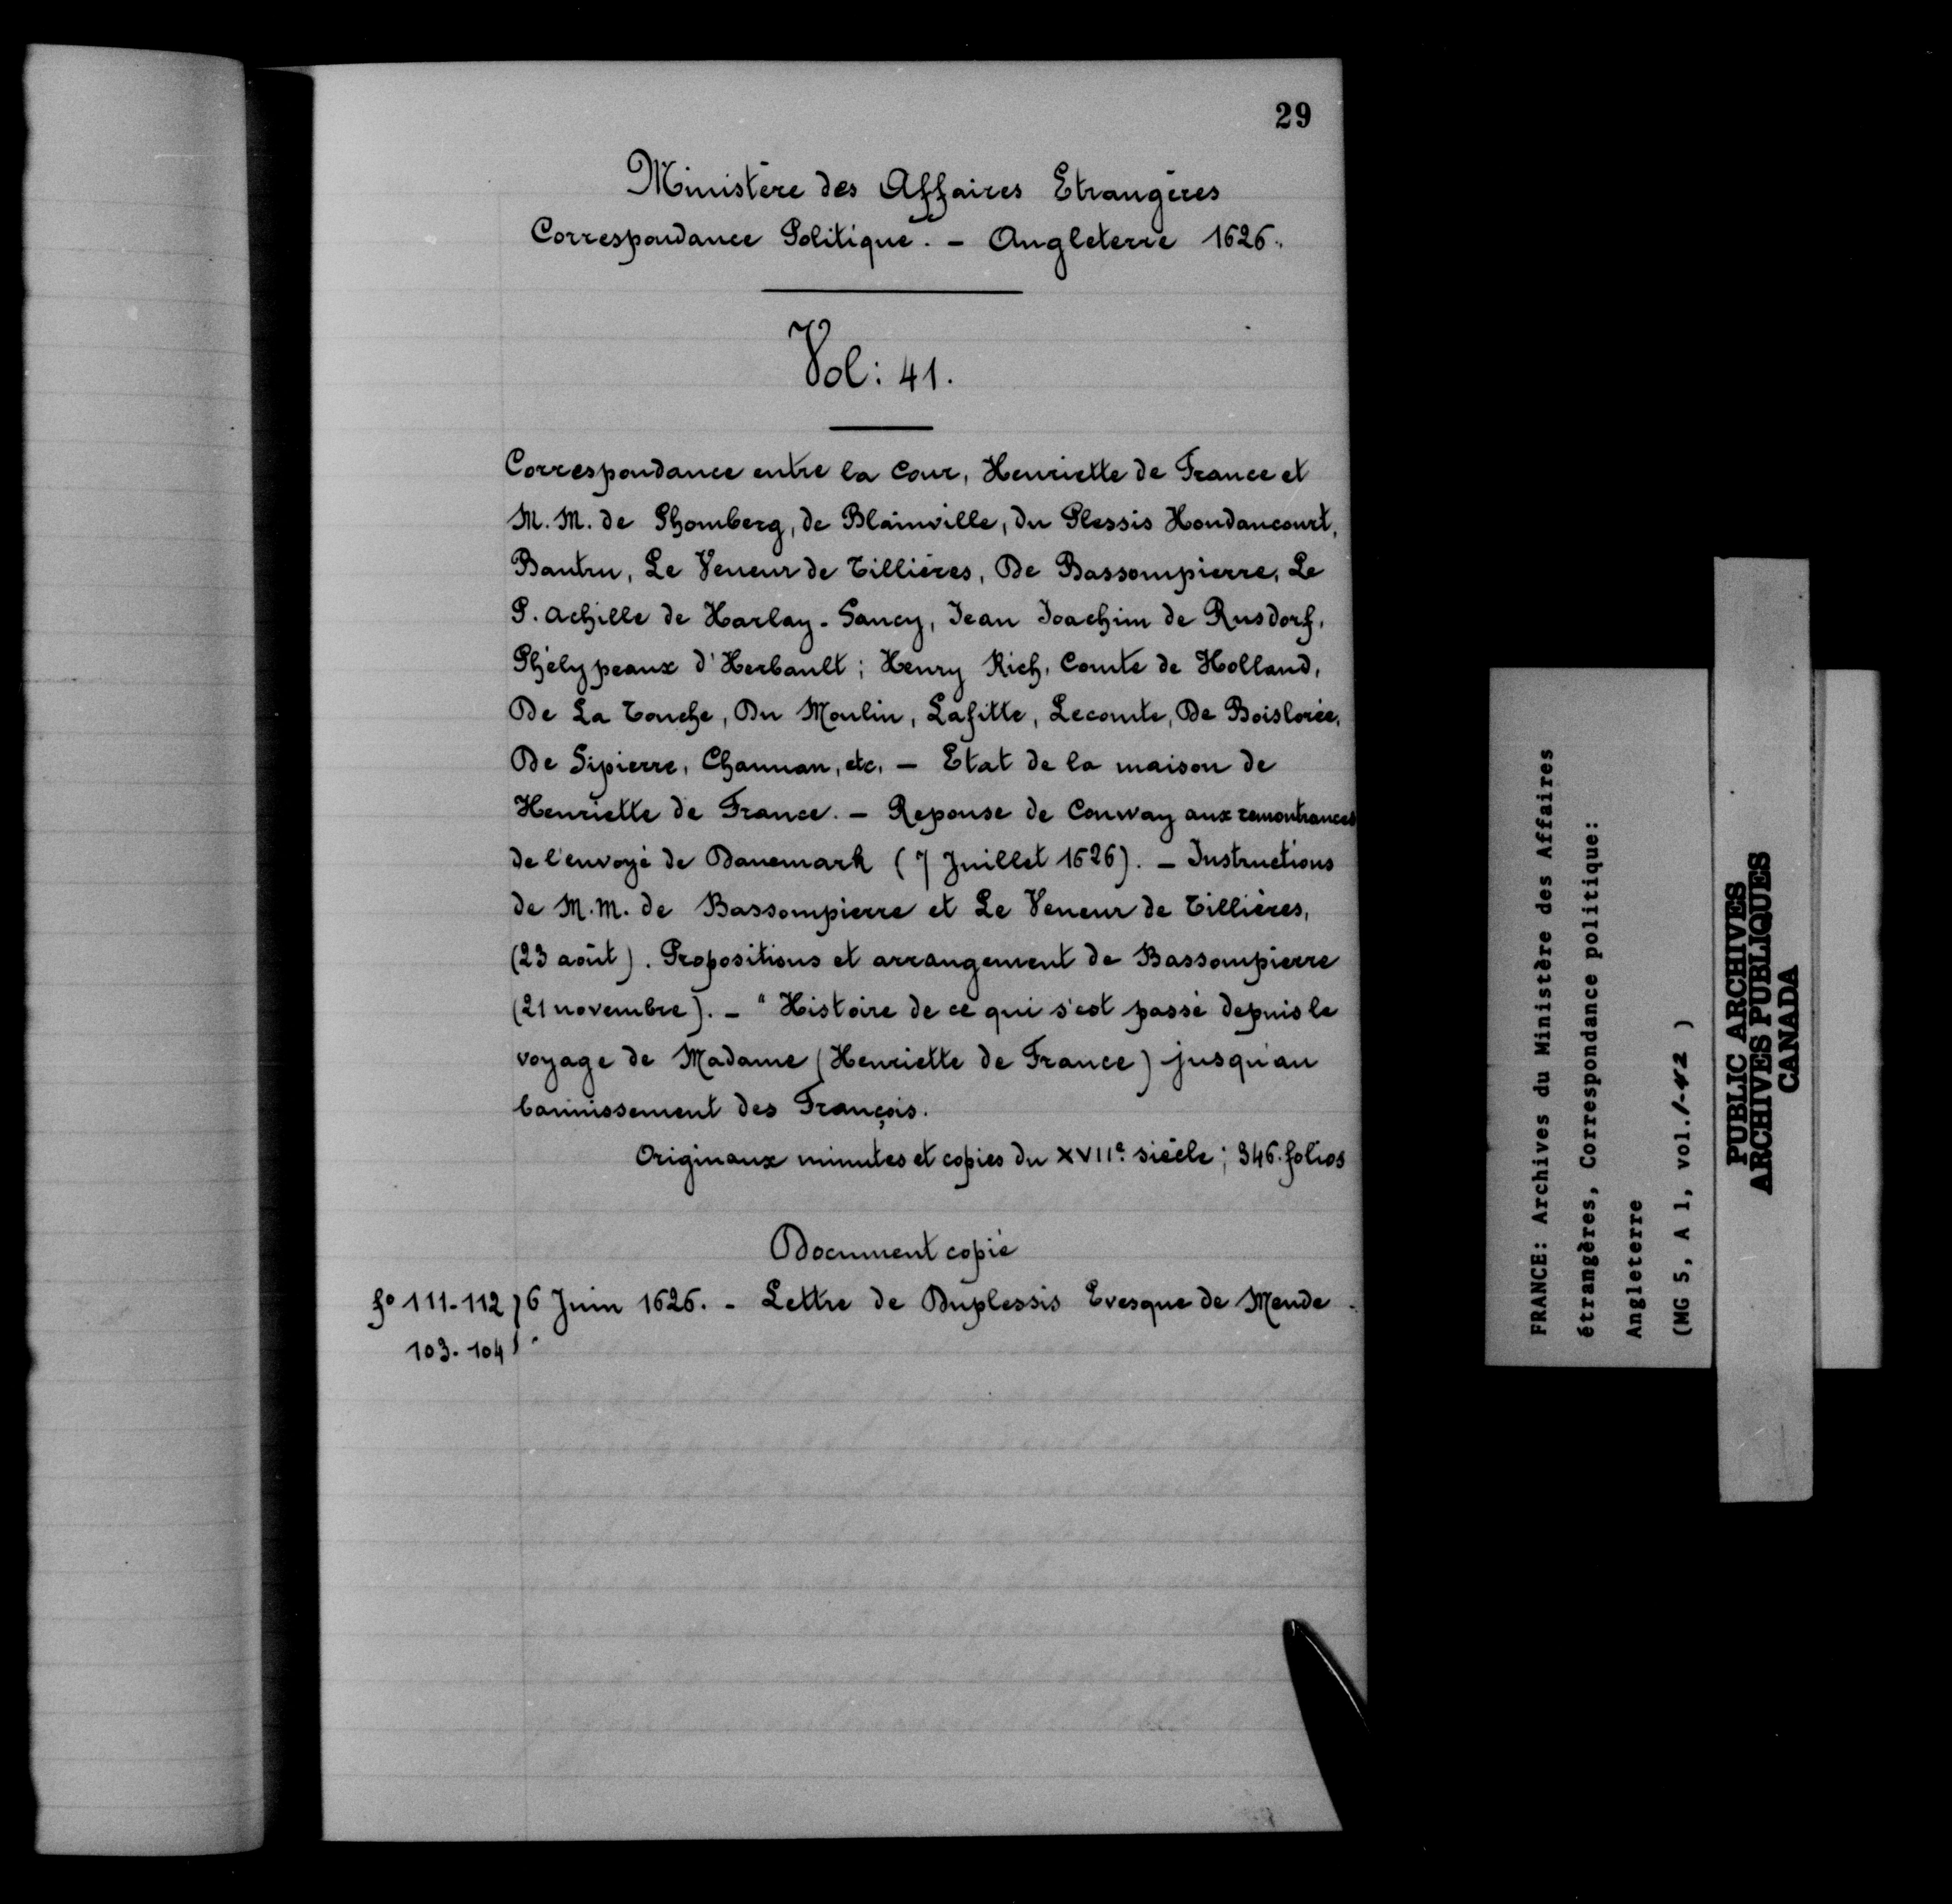 29
Ministère des Affaires Etrangères
Correspondance Politique. - Angleterre 1626.
Vol: 41.
Correspondance entre la Cour, Henriette de France et
M. M. de Shomberg, de Blainville, du Plessis Houdancourt,
Bautru, Le Veneur de Tillières, De Bassompierre, Le
P. Achille de Harlay-Sancy, Jean Joachim de Rusdorf,
Phélypeaux d'Herbault; Henry Rich, Comte de Holland,
De La Touche, Du Moulin, Lafitte, Lecomte, De Boislorée,
De Sipierre, Chaunan, etc. - Etat de la maison de
Henriette de France. - Reponse de Conway aux remontrances
de l'envoyé de Danemark (7 Juillet 1626). - Instructions
de M.M. de Bassompierre et Le Veneur de Tillières,
(23 août). Propositions et arrangement de Bassompierre
(21 novembre). - " Histoire de ce qui s'est passé depuis le
voyage de Madame (Henriette de France) jusqu'au
bannissement des François.
Originaux minutes et copies du XVIIe siècle; 346 folios
Document copié
fo 111-112 } 6 Juin 1626. - Lettre de Duplessis Evesque de Mende.
103-104
FRANCE: Archives du Ministère des Affaires
étrangères, Correspondance politique:
Angleterre
(MG 5, A 1, vol. 1-42 )
PUBLIC ARCHIVES
ARCHIVES PUBLIQUES
CANADA